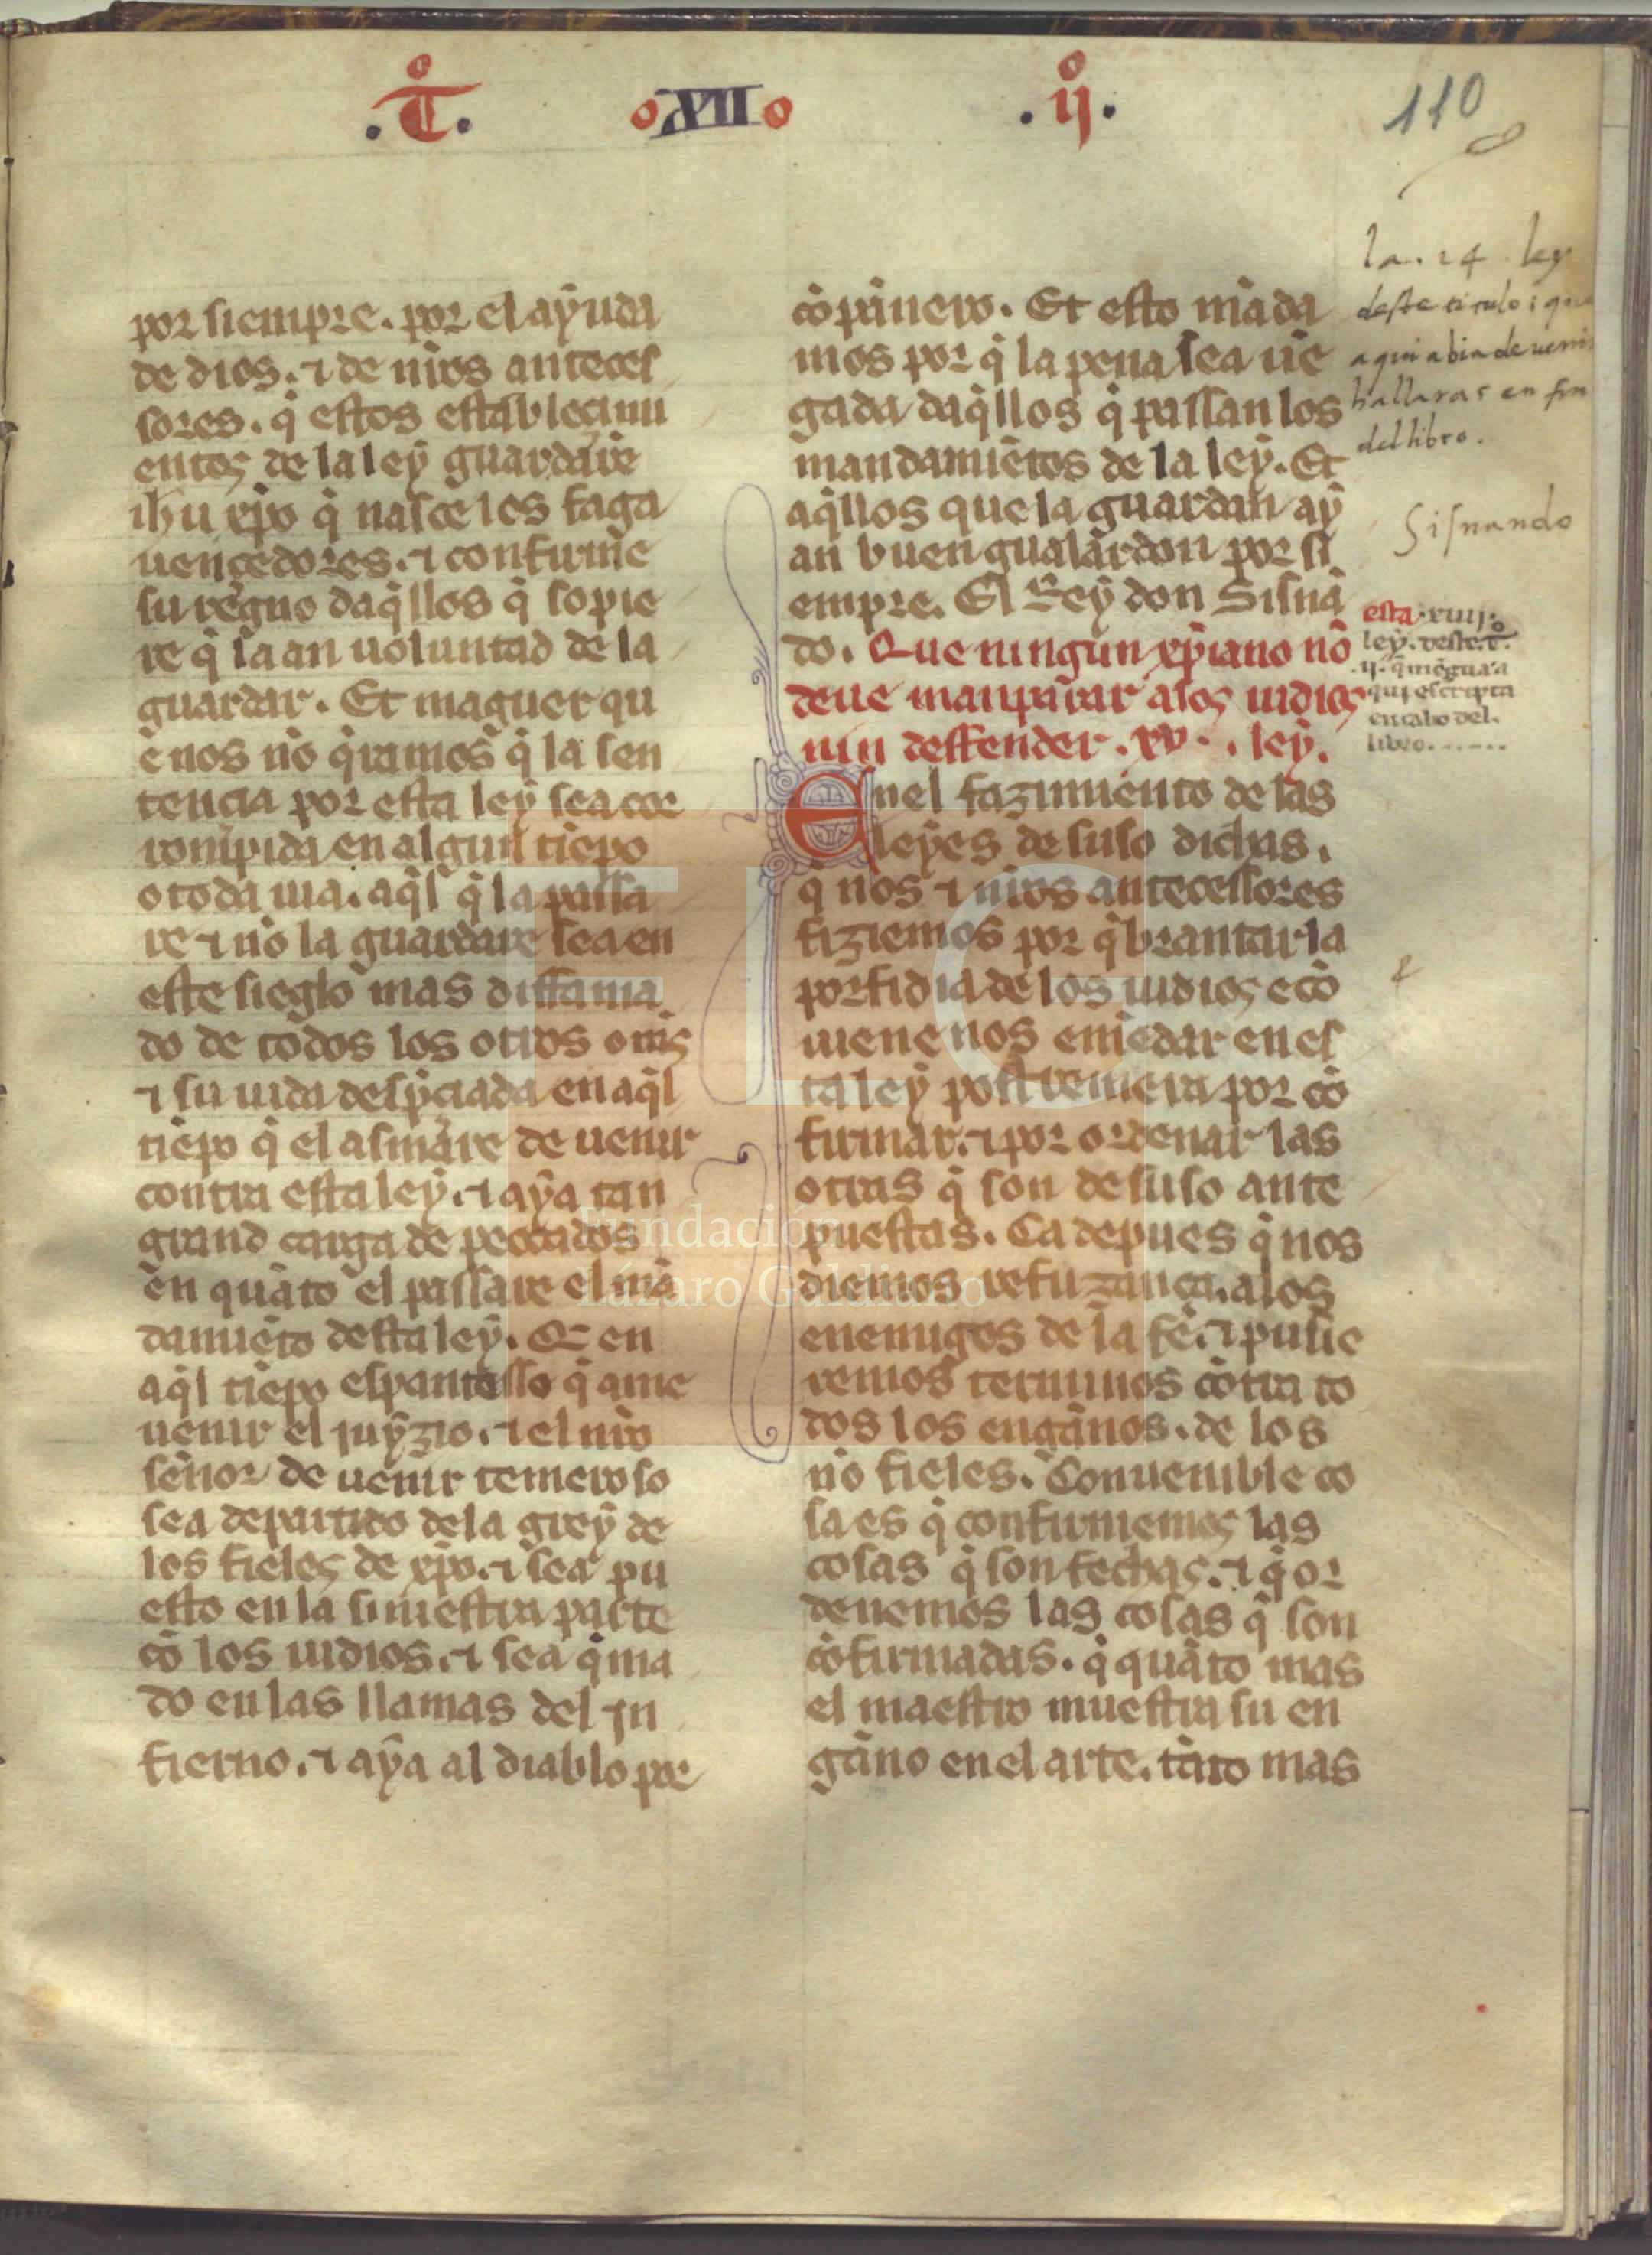 .T̊. oXIIo .ij̊.
110
por siempre. por el aỹuda
de dios. ⁊ de nr̃os anteces
sores. q̃ estos establecimi
entos de la ley guardare
ihu xp̃o q̃ nasce les faga
uencedores. ⁊ confirme
su regno daq̃llos q̃ sopie
re q̃ lãan uoluntad de la
guardar. Et maguer qu
e nos nõ q̃ramos q̃ la sen
tencia por esta ley sea cor
rompida en algun tiẽpo
o toda uia. aq̃l q̃ la passa
re ⁊ nõ la guardare sea en
este sieglo mas diffama
do de todos los otros om̃s
⁊ su uida desp̃ciada en aq̃l
tiẽpo q̃ el asmare de uenir
contra esta ley. ⁊ aỹa tan
grand carga de peccados
en quãto el passare el mã
damiẽto desta ley. Et en
aq̃l tiẽpo espantoso q̃ a me
uenir el juyzio. ⁊ el nr̃o
señor de uenir temeroso
sea departido de la grey de
los fieles de xp̃o. ⁊ sea pu
esto en la siniestra parte
cõ los iudios. ⁊ sea q̃ma
do en las llamas del jn
fierno. ⁊ aỹa al diablo por
cõpãnero. Et esto mãda
mos por q̃ la pena sea uẽ
gada daq̃llos q̃ passan los
mandamiẽtos de la ley. Et
aq̃llos que la guardan aỹ
an buen gualardon por si
empre. El Rey don Sisnã
do. Que ningun xp̃iano nõ
deue manparar a los iudios
nin deffender. xv. . ley.
Enel fazimiento de las
leyes de suso dichas.
q̃ nos ⁊ nr̃os antecessores
fiziemos por q̃brantar la
porfidia de los iudios ecõ
uiene nos enñedar en es
ta ley postremera por cõ
firmar. ⁊ por ordenar las
otras q̃ son de suso ante
puestas. Ca depues q̃ nos
diemos refuzança. a los
enemigos de la fe. ⁊ pusie
remos terminos cõtra to
dos los engãnos. de los
nõ fieles. Conuenible co
sa es q̃ confirmemos las
cosas q̃ son fechas. ⁊ q̃ or
denemos las cosas q̃ son
cõfirmadas. q̃ quãto mas
el maestro muestra su en
gãno en el arte. tãto mas
la. 14. ley
deste titulo; que
aqui abia de uenir
hallaras en fin
del libro.
Sisnando
esta. xiiij.o
ley. deste. t̊.
.ij. q̃ mẽgua a
qui escripta
en cabo del.
libro. ......
FLG
Fundación
Lázaro Galdiano